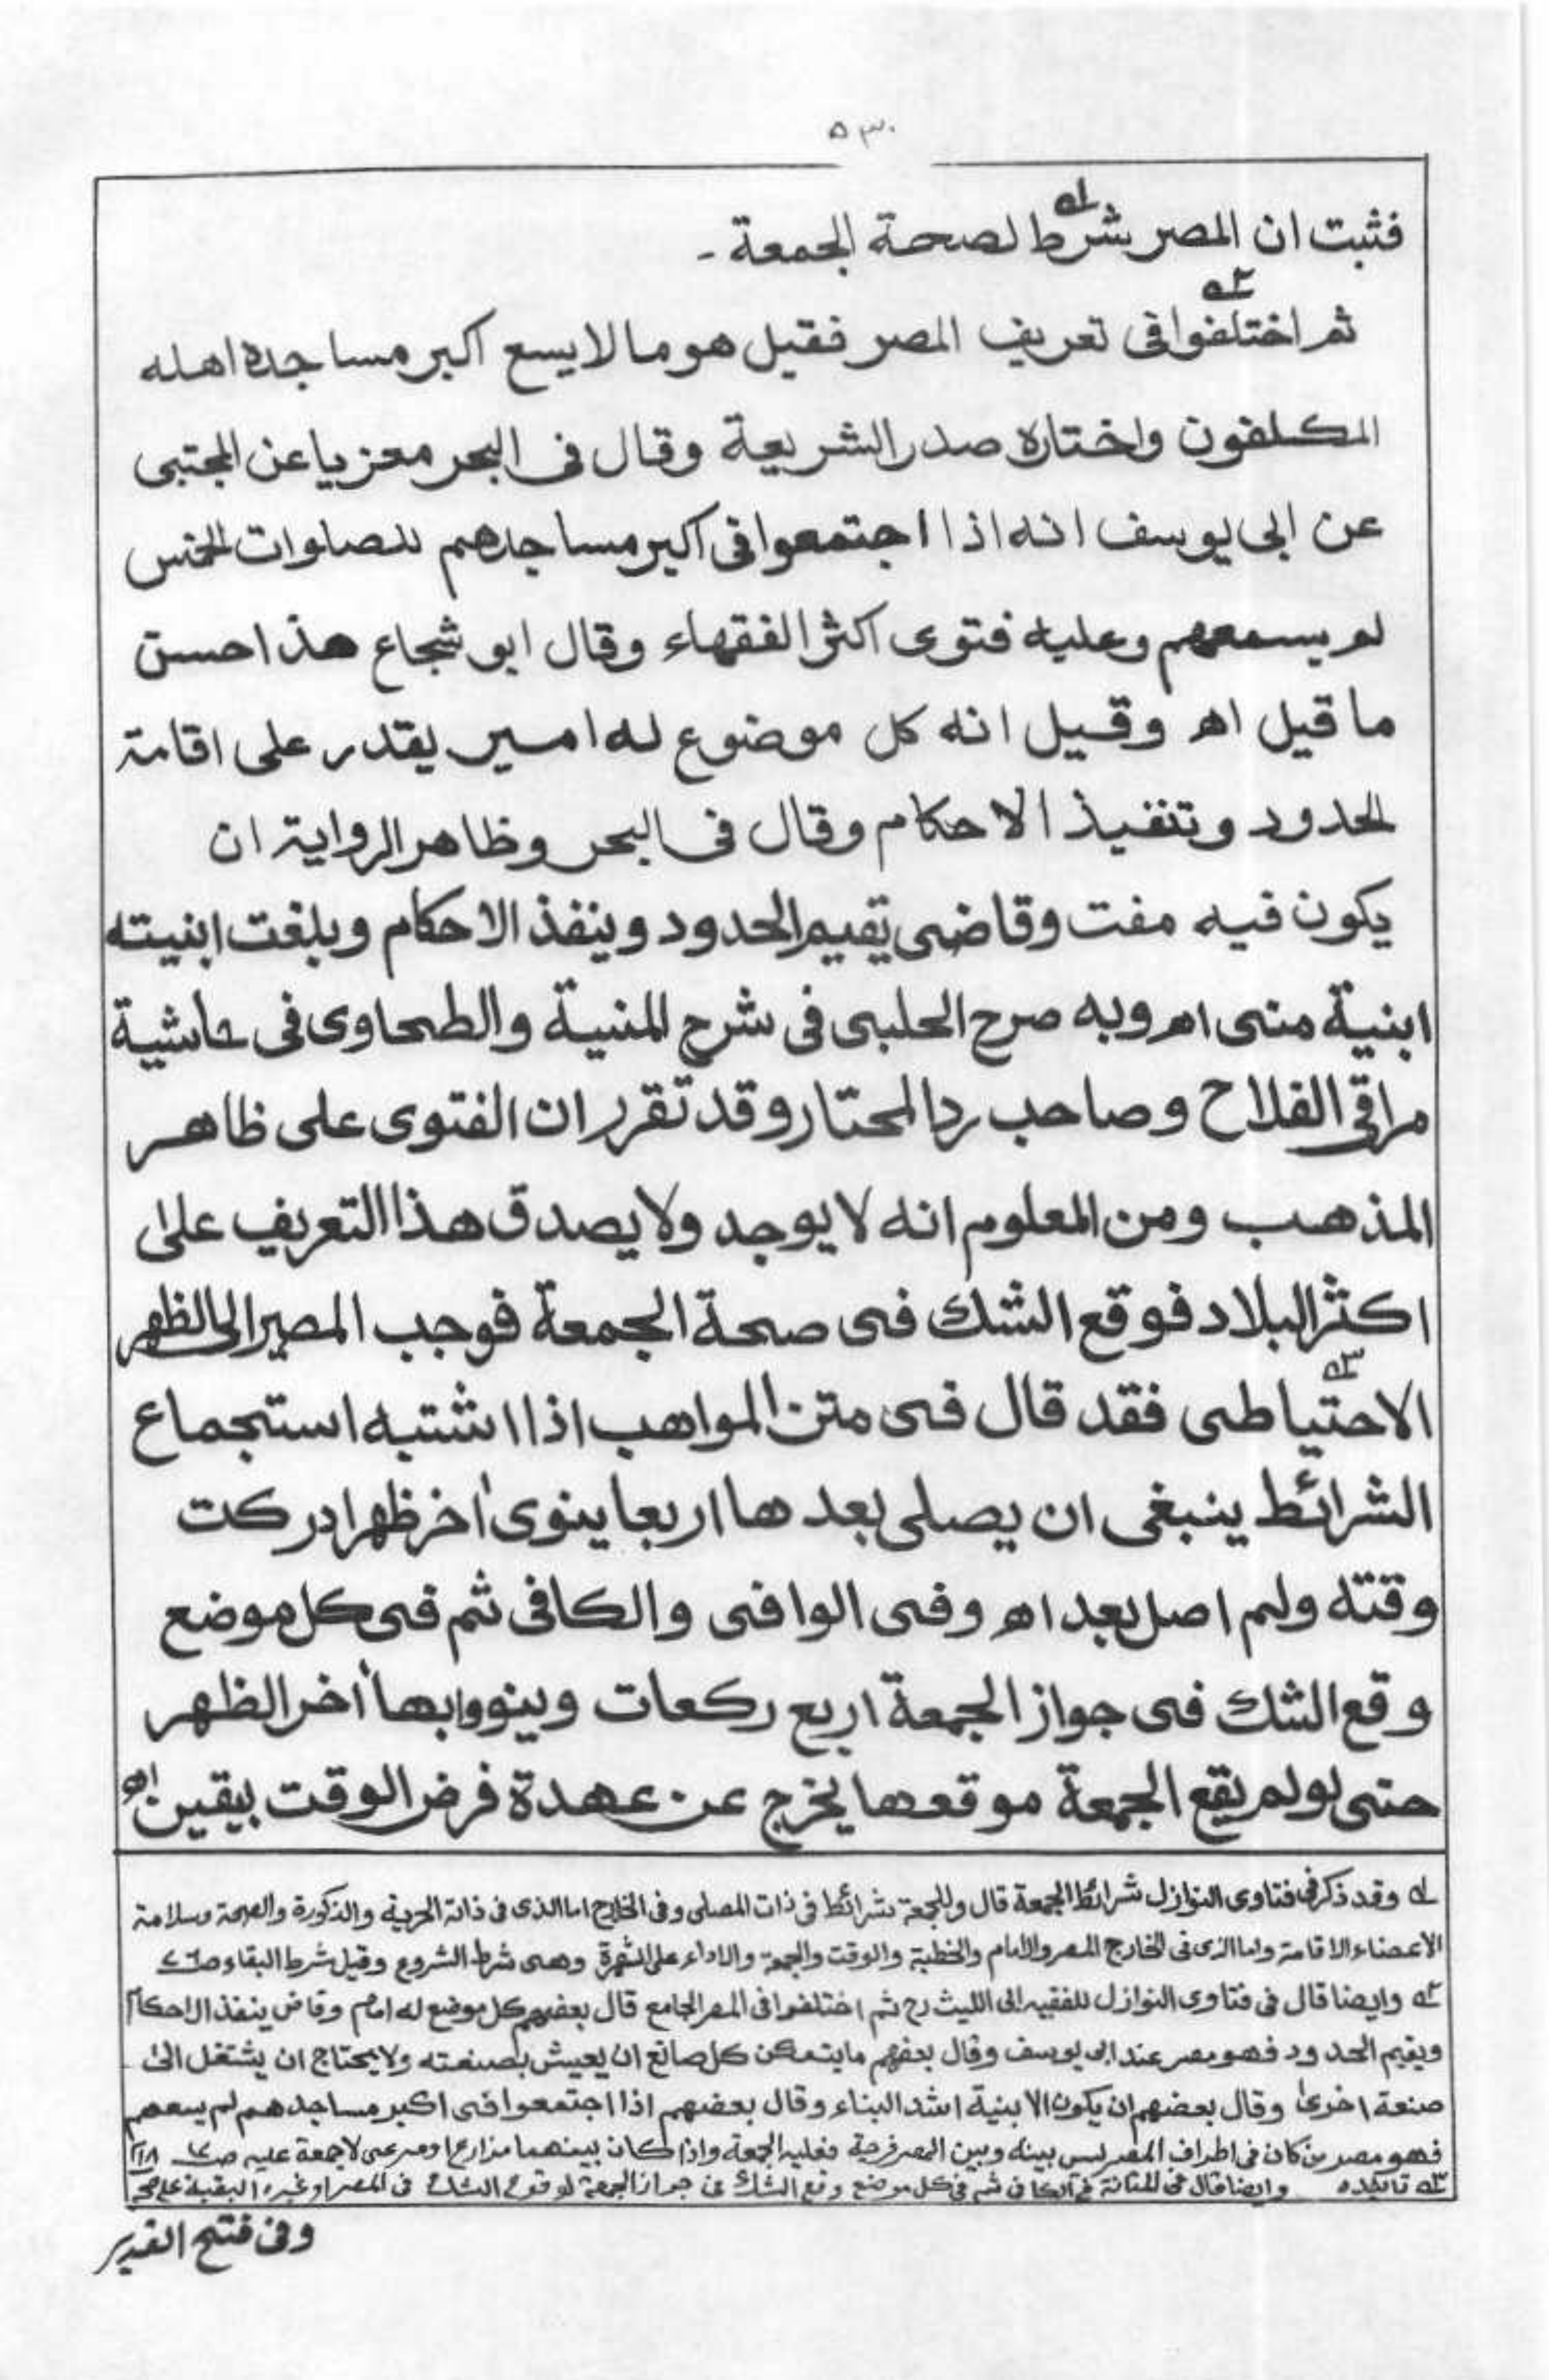 ۵۳۰
فثبت ان المصر شرط لصحة الجمعة ۔
ثم اختلفوا فی تعریف المصر فقیل هو ما لا یسع اکبر مساجده اهله
المکلفون واختاره صدر الشریعة وقال فی البحر معزیا عن المجتبی
عن ابی یوسف انه اذا اجتمعوا فی اکبر مساجدهم للصلوات الخمس
لم یسعهم وعلیه فتوی اکثر الفقهاء وقال ابو شجاع هذا احسن
ما قیل اه وقیل انه کل موضوع له امیر یقدر علی اقامة
الحدود وتنفیذ الاحکام وقال فی البحر وظاهر الروایة ان
یکون فیه مفت وقاضی یقیم الحدود وینفذ الاحکام وبلغت ابنیته
ابنیة منی اه وبه صرح الحلبی فی شرح المنیة والطحاوی فی حاشیة
مراقی الفلاح وصاحب رد المحتار وقد تقرر ان الفتوی علی ظاهر
المذهب ومن المعلوم انه لا یوجد ولا یصدق هذا التعریف علی
اکثر البلاد فوقع الشك فی صحة الجمعة فوجب المصیر الی الظهر
الاحتیاطی فقد قال فی متن المواهب اذا اشتبه استجماع
الشرائط ینبغی ان یصلی بعدها اربعا ینوی اٰخر ظهر ادرکت
وقته ولم اصل بعد اه وفی الوافی والکافی ثم فی کل موضع
وقع الشك فی جواز الجمعة اربع رکعات وینووا بها اٰخر الظهر
حتی لو لم یقع الجمعة موقعها یخرج عن عهدة فرض الوقت بیقین اه
لہ وقد ذکر فی فتاوی النوازل شرائط الجمعة قال وللجمعة شرائط فی ذات المصلی وفی الخارج اما الذی فی ذاته الحریة والذکورة والصحة وسلامة
الاعضاء الاقامة واما الذی فی الخارج المصر والامام والخطبة والوقت والجمعة والاداء علی الشهرة وهی شرط الشروع وقیل شرط البقاء
۲ہ وایضا قال فی فتاوی النوازل للفقیه ابی اللیث رح ثم اختلفوا فی المصر الجامع قال بعضهم کل موضع له امام وقاض ینفذ الاحکام
ویقیم الحدود فهو مصر عند ابی یوسف وقال بعضهم ما یتمکن کل صانع ان یعیش بصنعته ولا یحتاج ان یشتغل الی
صنعة اخری وقال بعضهم ان یکون الابنیة اشد البناء وقال بعضهم اذا اجتمعوا فی اکبر مساجدهم لم یسعهم
فهو مصر من کان فی اطراف المصر لیس بینه وبین المصر فرجة فعلیه الجمعة واذا کان بینهما مزارع لا جمعة علیه
۳ہ وایضا قال فی ثم فی کل موضع وقع الشك فی جواز الجمعة لوقوع الشك فی المصر او غیره
وفی فتح القدیر